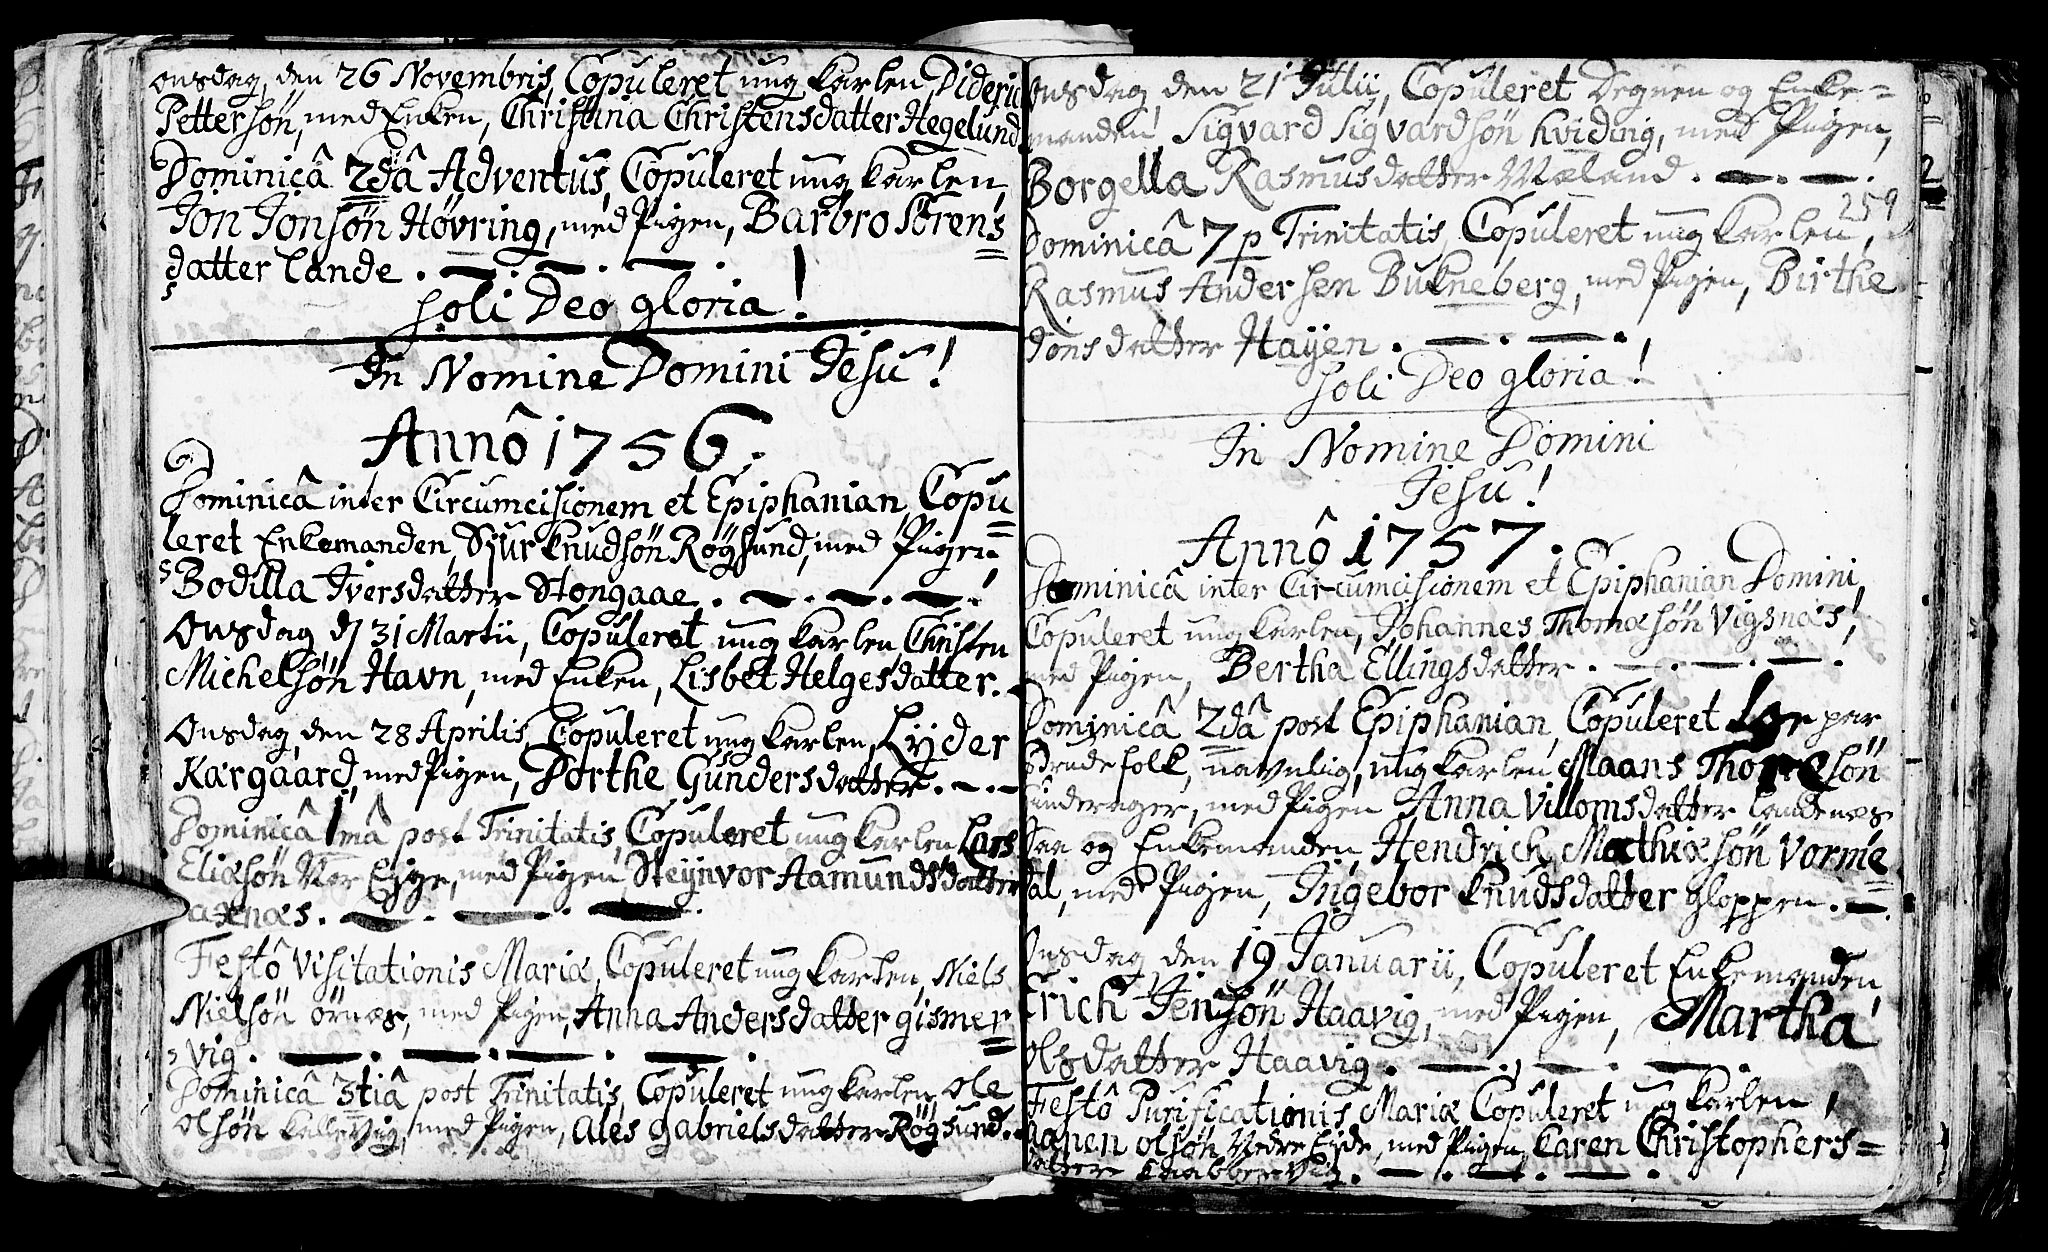 Onsdag, den 26 Novembris, Copuleret ung karlen, Dideric
Pettersøn, med Enken, Christina Christensdatter Hegelund
Dominicâ 2dâ Adventus, Copuleret ung karlen,
Jon Jonsøn Høvring, med Pigen, Barbro Sørens=
datter Lande.
soli Deo gloria!
In Nomine Domini Jesu!
Annô 1756.
Dominicâ inter Circumcisionem et Epiphanian, Copu=
leret Enkemanden, Sjur Knudsøn Røgsund, med Pigen,
Bodilla Iversdatter Stongaae.
Onsdag d 31 Martii, Copuleret ung karlen, Christen
Michelsøn Havn, med Enken, Lisbet Helgesdatter.
Onsdag, den 28 Aprilis, Copuleret ung karlen, Lyder
Kargaard, med Pigen, Dorthe Gundersdatter.
Dominicâ 1mâ post Trinitatis, Copuleret ung karlen Lars
Eliæsøn Nor Ejge, med Pigen, Steynvor Aamundsdatter
axnæs.
Festô Visitationis Mariæ, Copuleret ung karlen, Niels
Nielsøn Ørnæs, med Pigen, Anna Andersdatter gismer=
vig.
Dominicâ 3tiâ post Trinitatis, Copuleret ung karlen, Ole
Olsøn Kallevig, med Pigen, Ales Gabrielsdatter Røgsund.
Onsdag, den 21 Julii, Copuleret Degnen og Enke=
manden, Sigvard Sigvardsøn Hviding, med Pigen,
Borgella Rasmusdatter Mæland.
259
Dominicâ 7 p Trinitatis, Copuleret ung karlen,
Rasmus Andersen Bukneberg, med Pigen, Birthe
Jonsdatter Hayen.
soli Deo gloria!
In Nomine Domini
Jesu!
Annô 1757.
Dominicâ inter Circumcisionem et Epiphanian Domini,
Copuleret ung karlen, Johannes Thomæsøn Vigsnæs,
med Pigen, Bertha Ellingsdatter.
Dominicâ 2dâ post Epiphanian, Copuleret par
Brudefolk, navnlig, ung karlen Maans Thoresøn
med Pigen Anna Villomsdatter Landenæs
Saa og Enkemanden, Hendrich Mathiæsøn Vorme=
dal, med Pigen, Ingebor Knudsdatter gloppen.
Onsdag, den 19 Januarii, Copuleret Enkemanden,
Erich Jensøn Haavig, med Pigen, Martha
Olsdatter Haavig.
Festô Purificationis Mariæ Copuleret ung karlen,
Aanen Olsøn Nedre Eyde, med Pigen, Karen Christophers=
datter Knabbervig.